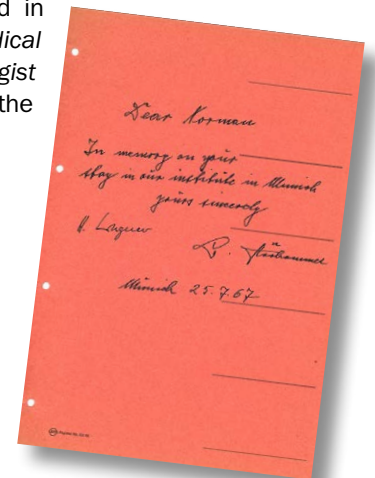 d in
dical
gist
the
Dear Norman
In memory on your
stay in our institute in Munich
yours sincerely
Munich 25.7.67